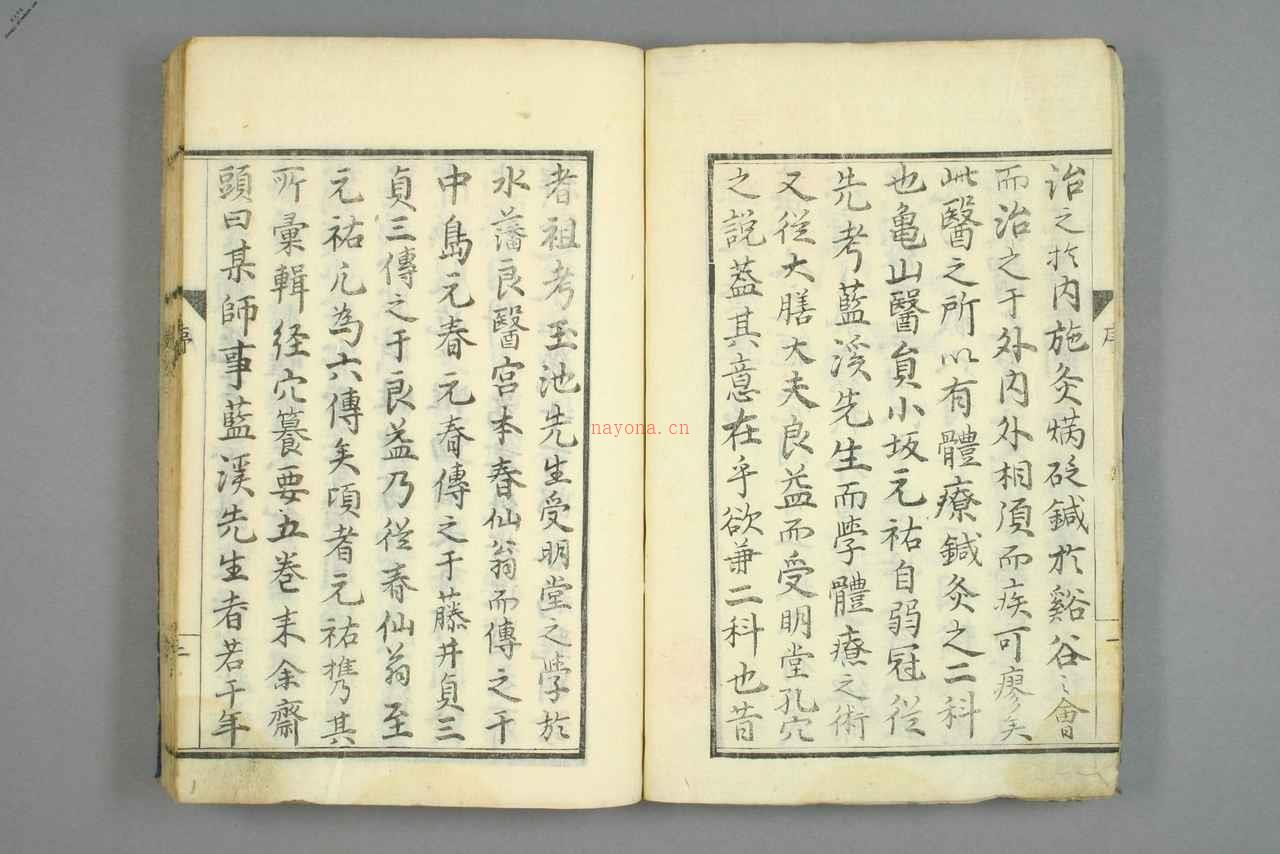 治之於内施灸焫砭鍼於谿谷之會
而治之于外内外相須而疾可廖矣
此醫之所以有體療鍼灸之二科
也亀山醫負小坂元祐自弱冠従
先考藍溪先生而學體療之術
又従大膳大夫良益而受明堂孔穴
之説葢其意在乎欲兼二科也昔
序
二
者祖考玉池先生受明堂之學於
水藩良醫宮本春仙翁而傳之于
中島元春元春傳之于藤井貞三
貞三傳之于良益乃従春仙翁至
元祐凢為六傳矣頃者元祐携其
所彙輯径穴籑要五巻来余齋
頭曰某師事藍溪先生者若干年
序
nayona.cn